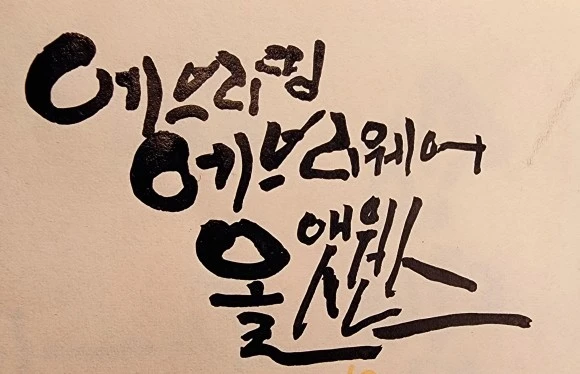 에브리띵
에브리웨어
올 앳 원스